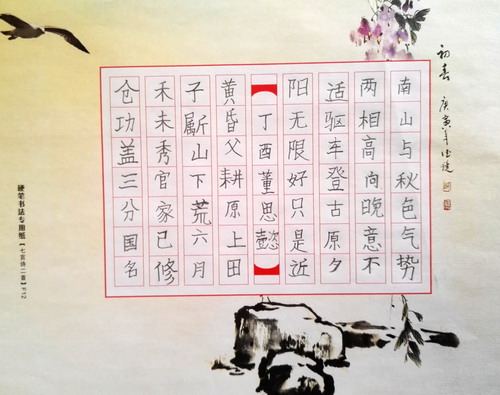 初春 庚寅年
南山与秋色气势
两相高向晚意不
适驱车登古原夕
阳无限好只是近
丁酉董思懿
黄昏父耕原上田
子𣃁山下荒六月
禾未秀官家已修
仓功盖三分国名
硬笔书法专用纸【七言诗二首】F12